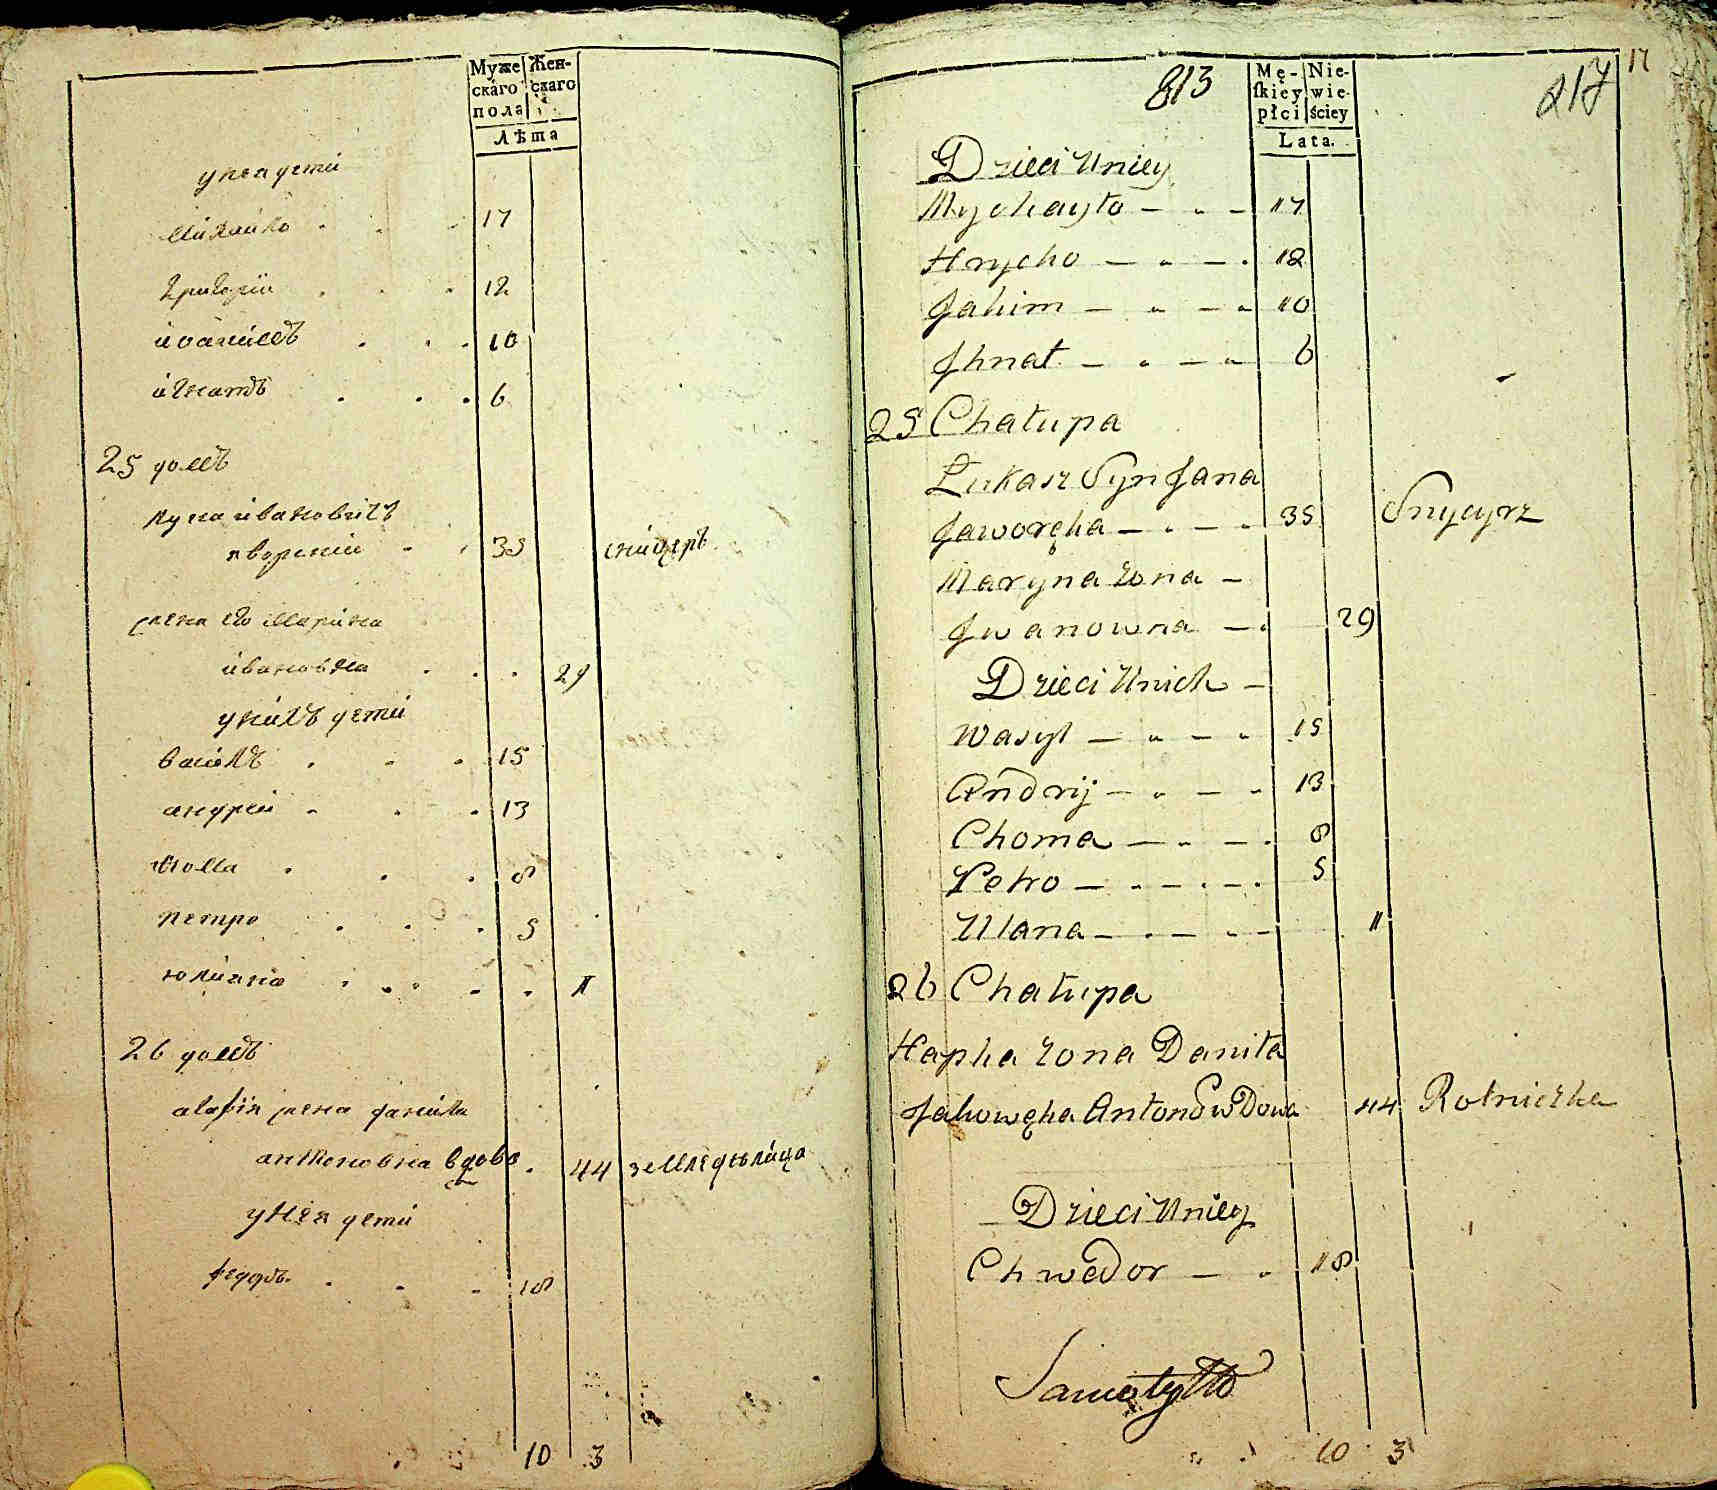 Муже
скаго
пола
Жен-
скаго
Лѣта
у нея дети
михайло 17
григорiй 12
иоакимъ 10
игнатъ 6
25 домъ
лука ивановичъ
яворскiй 35 сницеръ
жена его марина
ивановна 29
у нихъ дети
василь 15
андрей 13
хома 8
петро 5
юлиана 1
26 домъ
агафiя жена данила
антоновна вдова 44 земледелица
у нея дети
федоръ 18
10 3
813
217
17
Mę-
skiey
płci
Nie-
wie-
ściey
Lata.
Dzieci Uniey
Mychayło 17
Hrycho 12
Jakim 10
Jhnat 6
25 Chałupa
Łukasz Syn Jana
Jaworska 35 Snycyrz
Maryna żona
Jwanowna 29
Dzieci Unich
Wasyl 15
Andrij 13
Choma 8
Petro 5
Ulana 1
26 Chałupa
Hapka żona Daniła
Antonów Dowa 44 Rolniczka
Dzieci Uniey
Chwedor 18
10 3